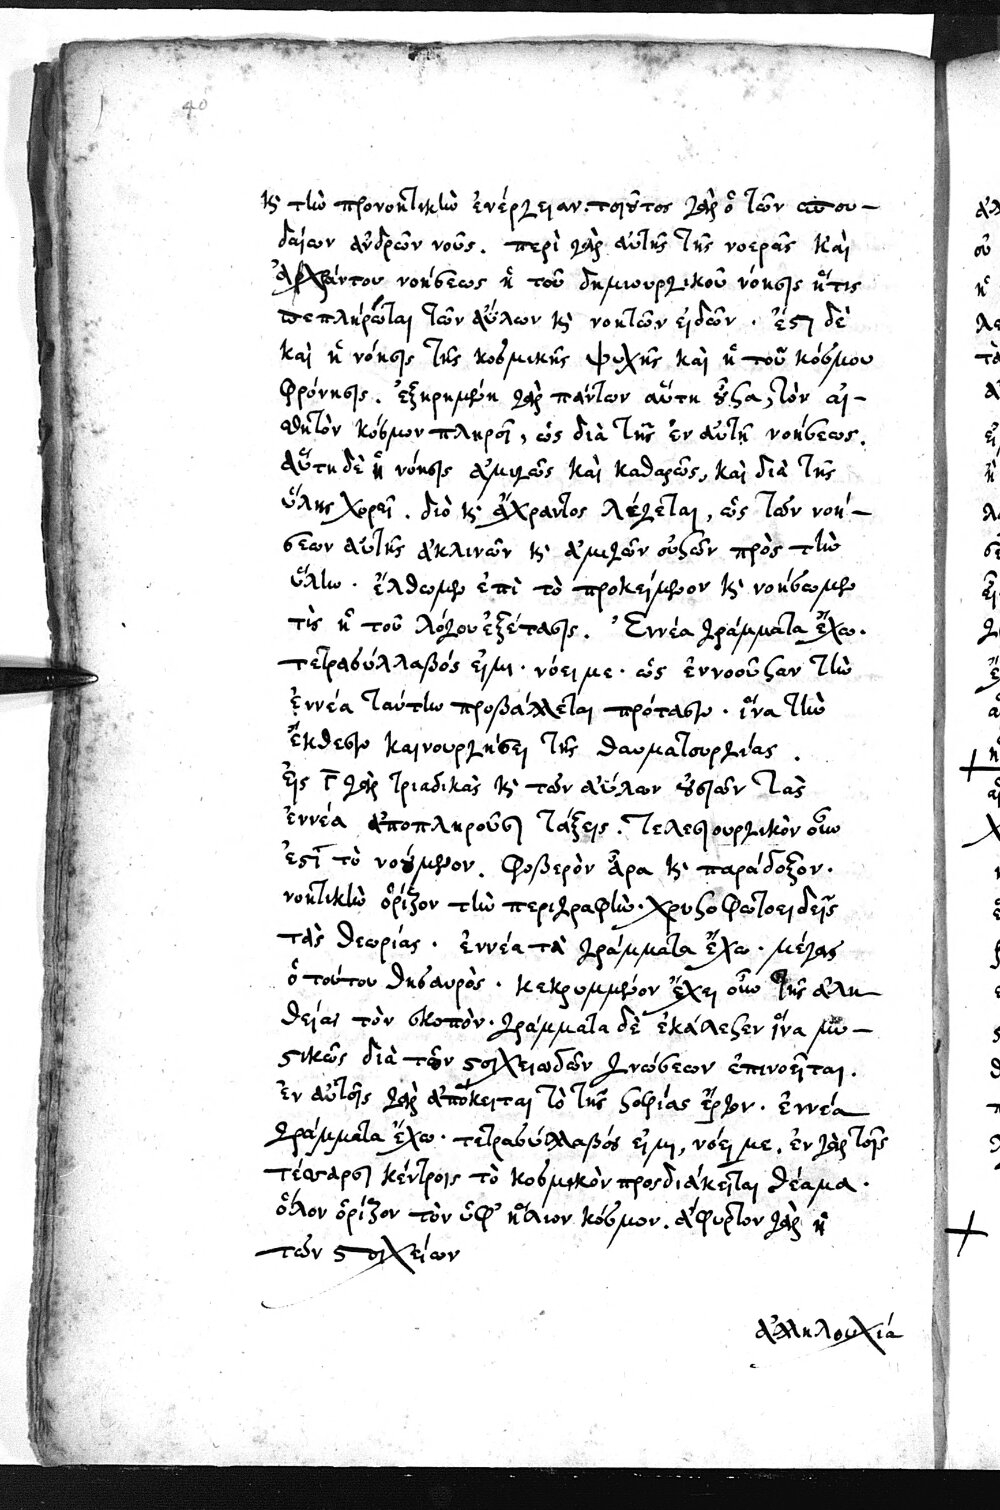 40
κ̀ τὴν προνοητικὴν ἐνέργειαν. τοιοῦτος γὰρ ὁ τῶν σπου–
δαίων ἀνδρῶν νοῦς. περὶ γὰρ αὐτῆς τῆς νοερᾶς καὶ
ἀχράντου νοήσεως ἢ τοῦ δημιουργικοῦ νόησις ἥτις
πεπλήρωται τῶν ἀΰλων κ̀ νοητῶν εἰδῶν. ἐστὶ δὲ
καὶ ἡ νόησις τῆς κοσμικῆς ψυχῆς καὶ ἡ τοῦ κόσμου
φρόνησις. ἐξηρημένη γὰρ πάντων αὕτη οὖσα, τὸν αἰ–
σθητὸν κόσμον πληροῖ, ὡς διὰ τῆς ἐν αὐτῇ νοήσεως.
αὕτη δὲ ἡ νόησις ἀμιγῶς καὶ καθαρῶς, καὶ διὰ τῆς
ὕλης χορεῖ. διὸ κ̀ ἄχραντος λέγεται, ὡς τῶν νοή–
σεων αὐτῆς ἀκλινῶν κ̀ ἀμιγῶν οὐσῶν πρὸς τὴν
ὕλην. ἔλθωμεν ἐπὶ τὸ προκείμενον κ̀ νοήσωμεν
τίς ἡ τοῦ λόγου ἐξέτασις. Ἐννέα γράμματα ἔχω.
τετρασύλλαβός εἰμι. νόει με. ὡς ἐννοοῦσαν τὴν
ἐννέα ταύτην προβάλλεται πρότασιν. ἵνα τὴν
ἔκθεσιν καινουργήσει τῆς θαυματουργίας.
εἰς γ γὰρ τριαδικὰς κ̀ τῶν ἀΰλων οὐσιῶν τὰς
ἐννέα ἀποπληροῦσι τάξεις. τελεσιουργικὸν οὖν
ἐστὶ τὸ νοούμενον. φοβερὸν ἄρα κ̀ παράδοξον.
νοητικὴν ὁρίζον τὴν περιγραφήν. χρυσοφωτοειδεῖς
τὰς θεωρίας. ἐννέα τὰ γράμματα ἔχω. μέγας
ὁ τούτου θησαυρὸς. κεκρυμμένον ἔχει οὖν τῆς ἀλη–
θείας τὸν σκοπὸν. γράμματα δὲ ἐκάλεσεν ἵνα μυ–
στικῶς διὰ τῶν στοιχειωδῶν γνώσεων ἐπινοεῖται.
ἐν αὐτοῖς γὰρ ἀπόκειται τὸ τῆς σοφίας ἔργον. ἐννέα
γράμματα ἔχω. τετρασύλλαβός εἰμι, νόει με. ἐν γὰρ τοῖς
τέσσαρσι κέντροις τὸ κοσμικὸν προσδιάκειται θέαμα.
ὅλον ὁρίζον τὸν ὑφ' ἥλιον κόσμον. ἄφυρτον γὰρ ἡ
τῶν στοιχείων
ἀλληλουχία